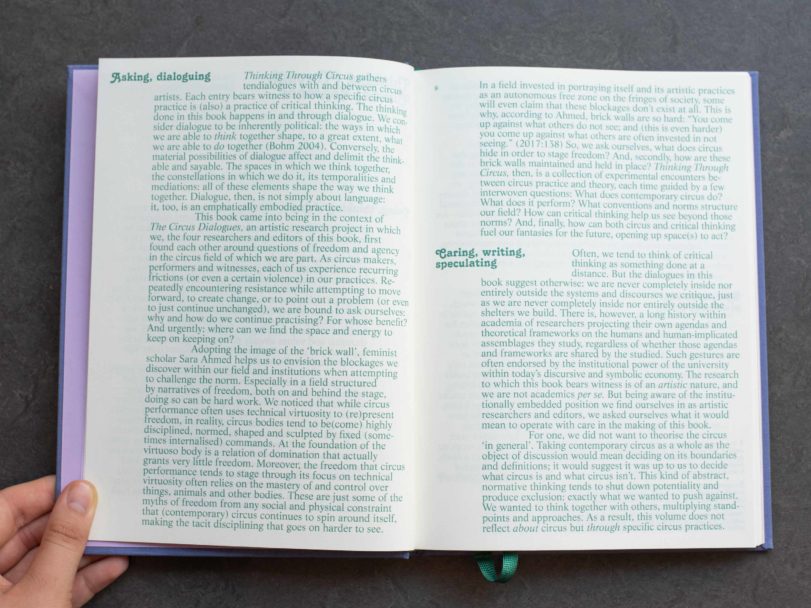 Asking, dialoguing Thinking Through Circus gathers
tendialogues with and between circus
artists. Each entry bears witness to how a specific circus
practice is (also) a practice of critical thinking. The thinking
done in this book happens in and through dialogue. We con-
sider dialogue to be inherently political: the ways in which
we are able to think together shape, to a great extent, what
we are able to do together (Bohm 2004). Conversely, the
material possibilities of dialogue affect and delimit the think-
able and sayable. The spaces in which we think together,
the constellations in which we do it, its temporalities and
mediations: all of these elements shape the way we think
together. Dialogue, then, is not simply about language:
it, too, is an emphatically embodied practice.
This book came into being in the context of
The Circus Dialogues, an artistic research project in which
we, the four researchers and editors of this book, first
found each other around questions of freedom and agency
in the circus field of which we are part. As circus makers,
performers and witnesses, each of us experience recurring
frictions (or even a certain violence) in our practices. Re-
peatedly encountering resistance while attempting to move
forward, to create change, or to point out a problem (or even
to just continue unchanged), we are bound to ask ourselves:
why and how do we continue practising? For whose benefit?
And urgently: where can we find the space and energy to
keep on keeping on?
Adopting the image of the ‘brick wall’, feminist
scholar Sara Ahmed helps us to envision the blockages we
discover within our field and institutions when attempting
to challenge the norm. Especially in a field structured
by narratives of freedom, both on and behind the stage,
doing so can be hard work. We noticed that while circus
performance often uses technical virtuosity to (re)present
freedom, in reality, circus bodies tend to be(come) highly
disciplined, normed, shaped and sculpted by fixed (some-
times internalised) commands. At the foundation of the
virtuoso body is a relation of domination that actually
grants very little freedom. Moreover, the freedom that circus
performance tends to stage through its focus on technical
virtuosity often relies on the mastery of and control over
things, animals and other bodies. These are just some of the
myths of freedom from any social and physical constraint
that (contemporary) circus continues to spin around itself,
making the tacit disciplining that goes on harder to see.
9
In a field invested in portraying itself and its artistic practices
as an autonomous free zone on the fringes of society, some
will even claim that these blockages don't exist at all. This is
why, according to Ahmed, brick walls are so hard: “You come
up against what others do not see; and (this is even harder)
you come up against what others are often invested in not
seeing.” (2017:138) So, we ask ourselves, what does circus
hide in order to stage freedom? And, secondly, how are these
brick walls maintained and held in place? Thinking Through
Circus, then, is a collection of experimental encounters be-
tween circus practice and theory, each time guided by a few
interwoven questions: What does contemporary circus do?
What does it perform? What conventions and norms structure
our field? How can critical thinking help us see beyond those
norms? And, finally, how can both circus and critical thinking
fuel our fantasies for the future, opening up space(s) to act?
Caring, writing, speculating Often, we tend to think of critical
thinking as something done at a
distance. But the dialogues in this
book suggest otherwise: we are never completely inside nor
entirely outside the systems and discourses we critique, just
as we are never completely inside nor entirely outside the
shelters we build. There is, however, a long history within
academia of researchers projecting their own agendas and
theoretical frameworks on the humans and human-implicated
assemblages they study, regardless of whether those agendas
and frameworks are shared by the studied. Such gestures are
often endorsed by the institutional power of the university
within today's discursive and symbolic economy. The research
to which this book bears witness is of an artistic nature, and
we are not academics per se. But being aware of the institu-
tionally embedded position we find ourselves in as artistic
researchers and editors, we asked ourselves what it would
mean to operate with care in the making of this book.
For one, we did not want to theorise the circus
‘in general’. Taking contemporary circus as a whole as the
object of discussion would mean deciding on its boundaries
and definitions; it would suggest it was up to us to decide
what circus is and what circus isn't. This kind of abstract,
normative thinking tends to shut down potentiality and
produce exclusion; exactly what we wanted to push against.
We wanted to think together with others, multiplying stand-
points and approaches. As a result, this volume does not
reflect about circus but through specific circus practices.